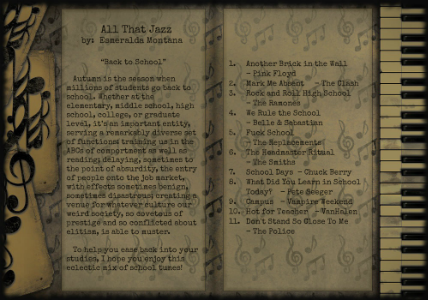 All That Jazz
by: Esmeralda Montana
"Back to School"
Autumn is the season when
millions of students go back to
school. Whether at the
elementary, middle school, high
school, college, or graduate
level, it's an important entity,
serving a remarkably diverse set
of functions training us in the
ABCs of comportment as well as
reading; delaying, sometimes to
the point of absurdity, the entry
of people onto the job market,
with effects sometimes benign,
sometimes disastrous; creating a
venue for whatever culture our
weird society, so covetous of
prestige and so conflicted about
elitism, is able to muster.
To help you ease back into your
studies. I hope you enjoy this
eclectic mix of school tunes!
1. Another Brick in the Wall
- Pink Floyd
2. Mark Me Absent - The Clash
3. Rock and Roll High School
- The Ramones
4. We Rule the School
- Belle & Sebastian
5. Fuck School
- The Replacements
6. The Headmaster Ritual
- The Smiths
7. School Days - Chuck Berry
8. What Did You Learn in School
Today? - Pete Seeger
9. Campus - Vampire Weekend
10. Hot for Teacher - VanHalen
11. Don't Stand So Close To Me
- The Police